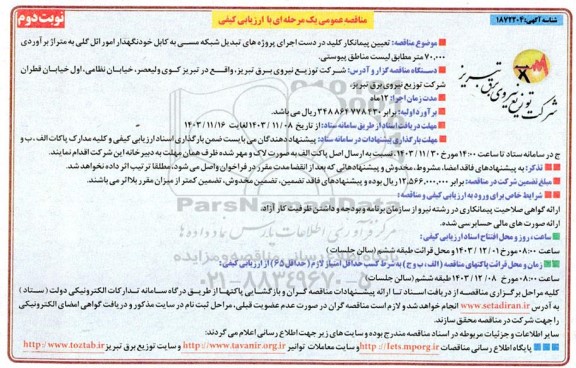 شناسه آگهی: ۱۸۷۲۲۰۴
مناقصه عمومی یک مرحله ای با ارزیابی کیفی
نوبت دوم
شرکت توزیع نیروی برق تبریز
موضوع مناقصه: تعیین پیمانکار کلید در دست اجرای پروژه های تبدیل شبکه مسی به کابل خودنگهدار امور ائل گلی به متراژ برآوردی
۷۰,۰۰۰ متر مطابق لیست مناطق پیوستی.
دستگاه مناقصه گزار و آدرس: شرکت توزیع نیروی برق تبریز، واقع در تبریز کوی ولیعصر، خیابان نظامی، اول خیابان قطران
شرکت توزیع نیروی برق تبریز.
مدت زمان اجرا: ۱۲ ماه
برآورد اولیه: برابر ۲۴۸۸۶۴۷۷۸۴۳۰ ریال می باشد.
مهلت دریافت اسناد از طریق سامانه ستاد: از تاریخ ۱۴۰۳/۱۱/۰۸ لغایت ۱۴۰۳/۱۱/۱۶
مهلت بارگذاری پیشنهادات در سامانه ستاد: پیشنهاددهندگان می بایست ضمن بارگذاری اسناد ارزیابی کیفی و کلیه مدارک پاکات الف، ب و
ج در سامانه ستاد تا ساعت ۱۴:۰۰ مورخ ۱۴۰۳/۱۱/۳۰، نسبت به ارسال اصل پاکت الف به صورت لاک و مهر شده ظرف همان مهلت به دبیرخانه این شرکت اقدام نمایند.
تذکر: به پیشنهادهای فاقد امضا، مشروط، مخدوش و پیشنهادهائی که بعد از انقضا مدت مقرر در فراخوان واصل می شود، مطلقا ترتیب اثر داده نخواهد شد.
مبلغ تضمین شرکت در مناقصه: برابر ۱۲,۵۶۶,۰۰۰,۰۰۰ ریال بوده و پیشنهادهای فاقد تضمین، تضمین مخدوش، تضمین کمتر از میزان مقرر بلااثر می باشند.
شرایط خاص برای ورود به ارزیابی کیفی و مناقصه:
ارائه گواهی صلاحیت پیمانکاری در رشته نیرو از سازمان برنامه و بودجه و داشتن ظرفیت کار آزاد.
ارائه صورت های مالی حسابرسی شده.
ساعت، روز و محل افتتاح اسناد ارزیابی کیفی:
ساعت ۰۸:۰۰ مورخ ۱۴۰۳/۱۲/۰۱ و محل قرائت طبقه ششم (سالن جلسات)
زمان و محل قرائت پاکتهای مناقصه (الف، ب و ج) به شرط کسب حداقل امتیاز لازم (حداقل ۶۵) از ارزیابی کیفی:
ساعت ۰۸:۰۰ مورخ ۱۴۰۳/۱۲/۰۸ طبقه ششم (سالن جلسات)
کلیه مراحل برگزاری مناقصه از دریافت اسناد تا ارائه پیشنهادات مناقصه گران و بازگشایی پاکتها از طریق درگاه سامانه تدارکات الکترونیکی دولت (ستاد) به
آدرس www.setadiran.ir انجام خواهد شد و لازم است مناقصه گران در صورت عدم عضویت قبلی، مراحل ثبت نام در سایت مذکور و دریافت گواهی امضای الکترونیکی
را جهت شرکت در مناقصه محقق سازند.
سایر اطلاعات و جزئیات مربوطه در اسناد مناقصه مندرج بوده و سایت های زیر جهت اطلاع رسانی اعلام می گردند:
پایگاه اطلاع رسانی مناقصات http://iets.mporg.ir وسایت معاملات توانیر http://www.tavanir.org.ir و سایت توزیع برق تبریز http://www.toztab.ir
ParsNamadData
۰۲۱-۸۸۳۴۹۶۷۰